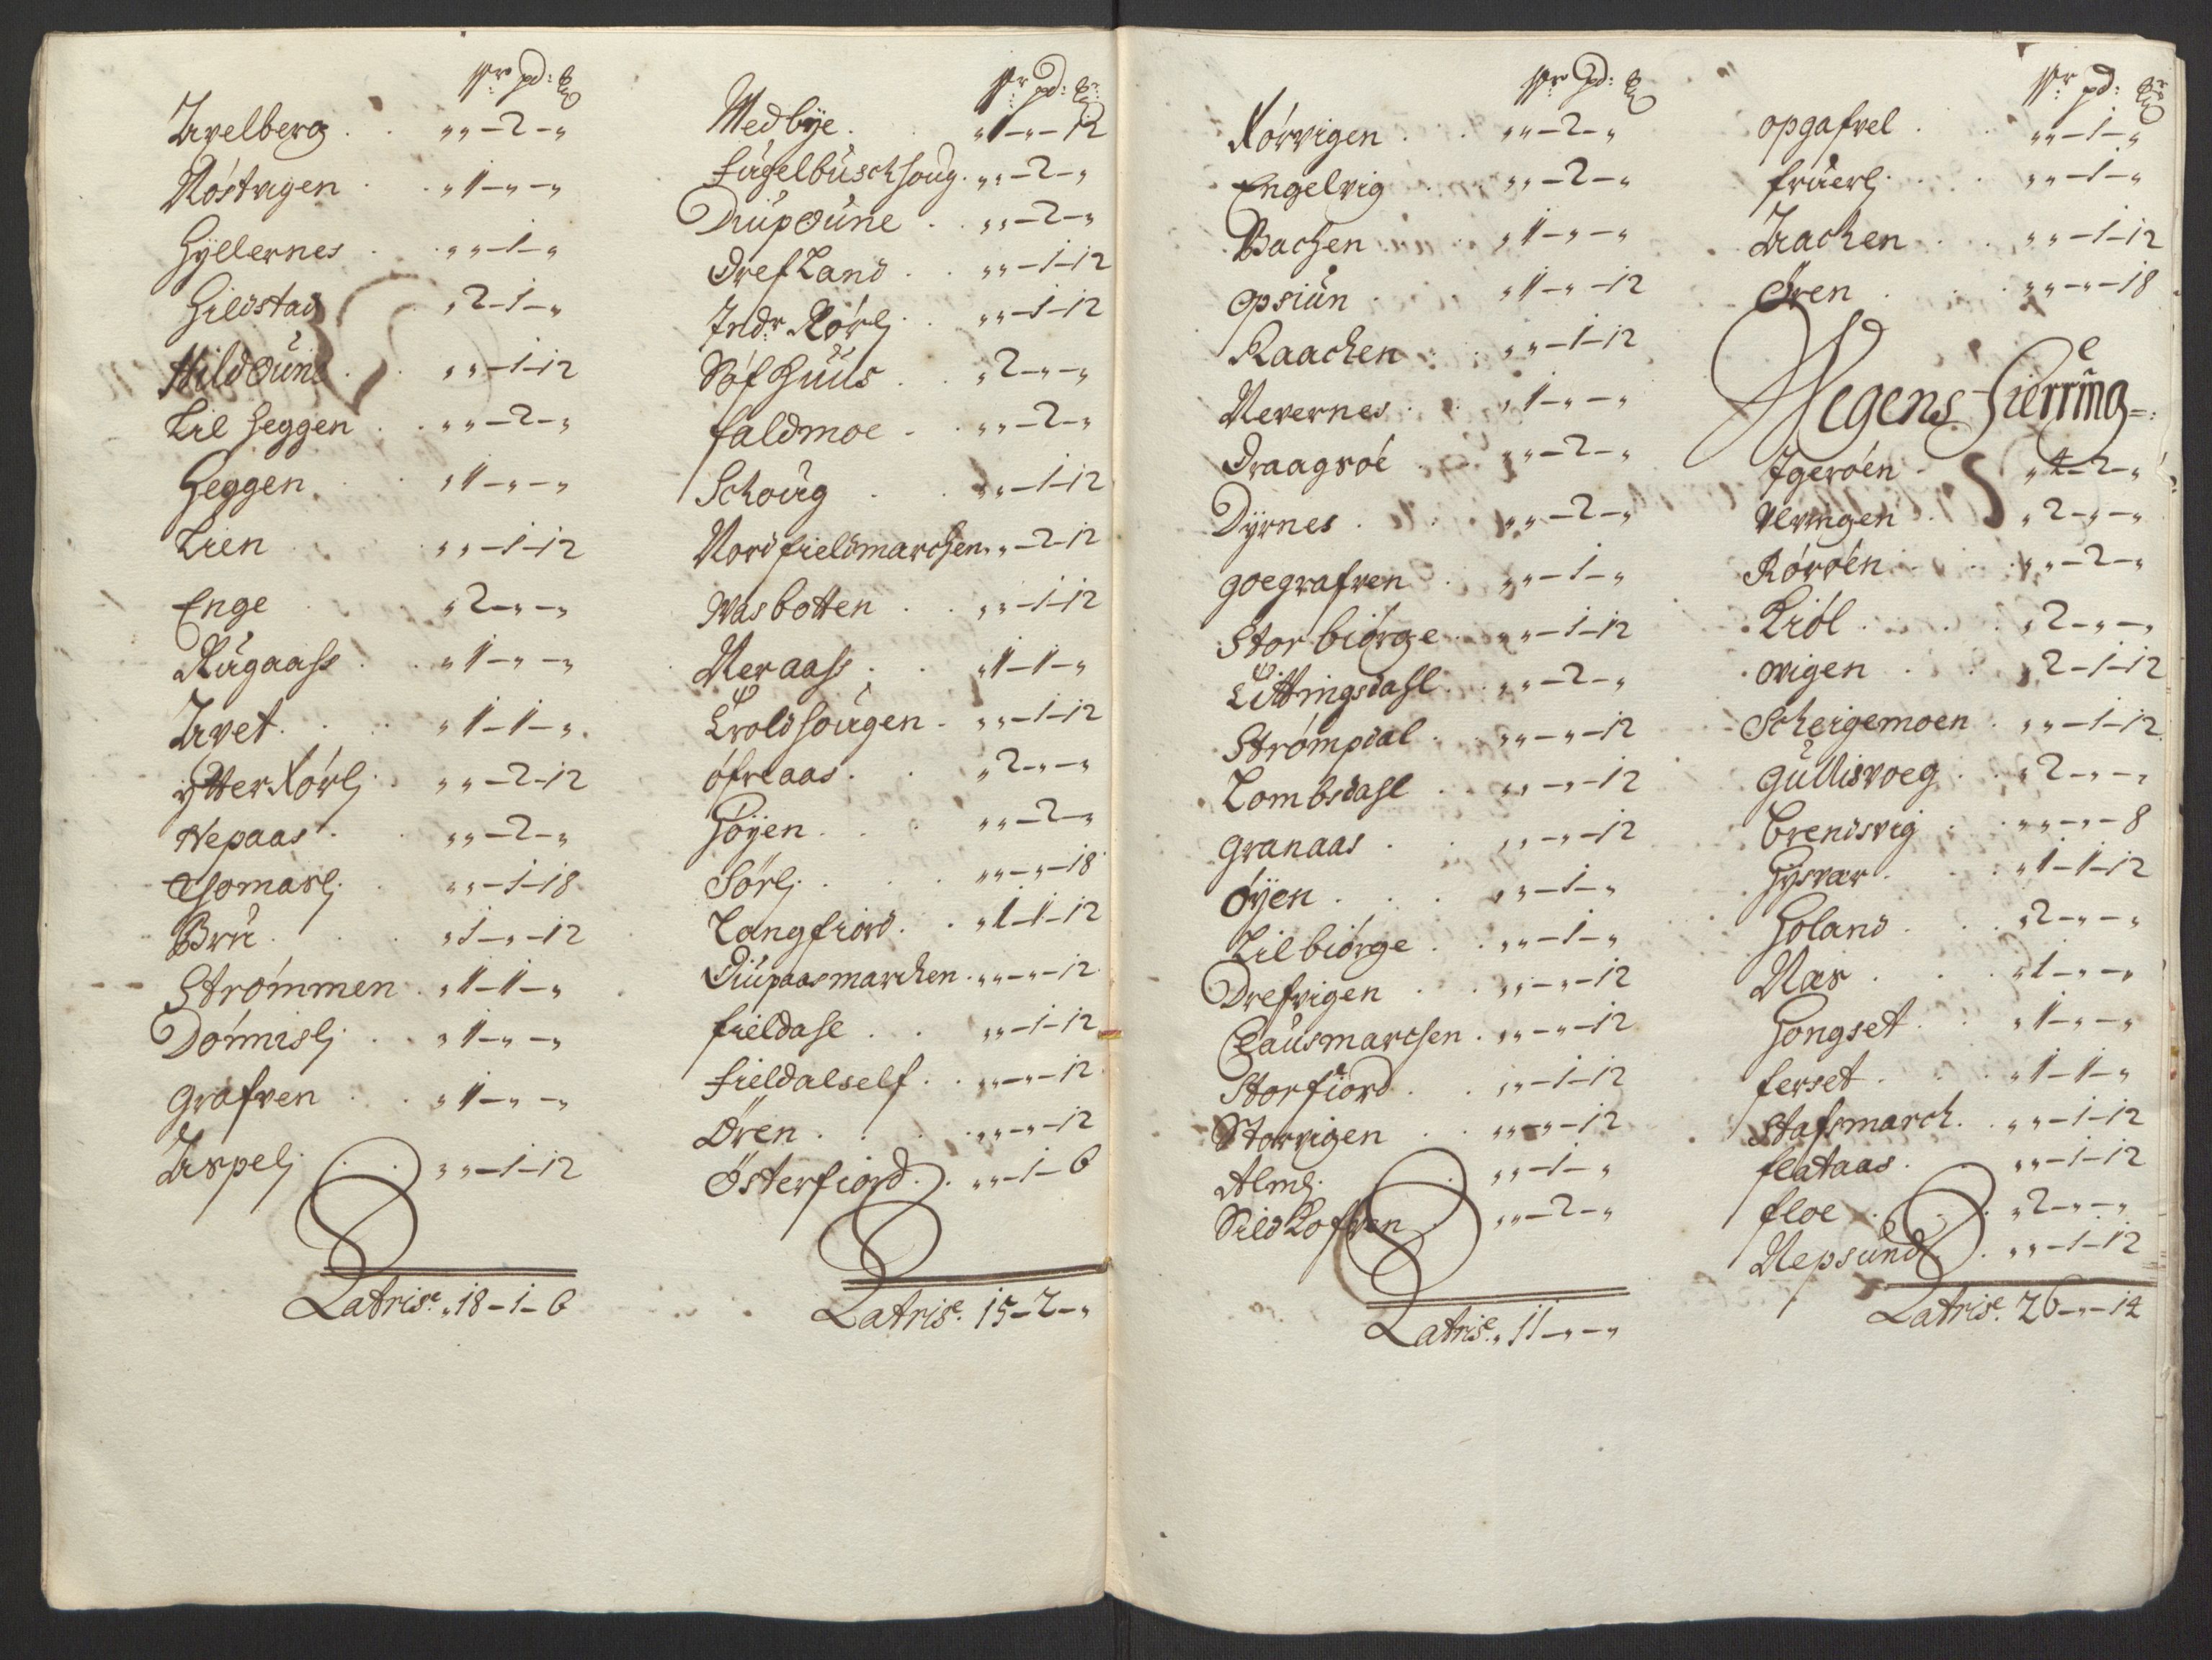 pr pd: ℔
Avelberg . . „ „ – 2 – „
Röstvigen . . „ 1 – „ – „
Hÿllernes . . „ „ – 1 – „
Hildstad „ 2 – 1 – „
Hildoune . . „ „ – 1 – 12
Lil heggen . . „ „ – 2 – „
Heggen . . „ 1 – „ – „
Lien . . „ „ – 1 – 12
Enge . . „ 2 – „ – „
Rugaass . . „ 1 – „ – „
Avet . . „ 1 – 1 – „
ÿtter Körlj . „ „ – 2 – 12
Nepaas . . „ „ – 2 – „
Thomaslj . . „ „ – 1 – 18
Bru . . . „ 1 – „ – 12
Strömmen . „ 1 – 1 – „
Dönnislj . . „ 1 – „ – „
Grafven . . „ 1 – „ – „
Aspelj . . „ „ – 1 – 12
Latris͛e „ 18 – 1 – 6
pr pd: ℔
Medbÿe . . „ 1 – „ – 12
Fugelbuschhoug . „ „ – 2 – „
Diupoune . . „ „ – 2 – „
Drefland . . „ „ – 1 – 12
Indr Körlj . . „ „ – 1 – 12
Söfhuus . . „ 2 – „ – „
faldmoe . . „ „ – 2 – „
Schoug . . „ „ – 1 – 12
Nordfieldmarchen „ „ – 2 – 12
Wasbotten . . „ „ – 1 – 12
Neraass . . „ 1 – 1 – „
Troldhougen . „ „ – 1 – 12
öfreaas . . „ 2 – „ – „
Höyen . . . „ „ – 2 – „
Sörlj . . . „ „ – „ – 18
Langfiord . . „ 1 – 1 – 12
Diupaasmarchen . „ „ – „ – 12
fieldase . . „ „ – 1 – 12
Fieldalself . . „ „ – „ – 12
Ören . . . „ „ – „ – 12
Österfiord . . „ „ – 1 – 6
Latrise . 15 – 2 – „
pr pd: ℔
Körvigen . . „ „ – 2 – „
Engelvig . . „ „ – 2 – „
Bachen . . „ 1 – „ – „
Opsiun . . „ 1 – „ – 12
Raachen . . „ „ – 1 – 12
Nevernes . . „ 1 – „ – „
Draagsöe . . „ „ – 2 – „
Dÿrnes . . „ „ – 2 – „
goegrafven . „ „ – 1 – „
Storbiörge . „ „ – 1 – 12
Littingsdahl . „ „ – 2 – „
Strömpdal . . „ „ – „ – 12
Lombsdahl . . „ „ – „ – 12
Granaas . . „ „ – „ – 12
öÿen . . . „ „ – 1 – „
Lilbiörge . . „ „ – 1 – „
Drefvigen . . „ „ – „ – 12
Clausmarchen . „ „ – „ – 12
Storfiord . . „ „ – 1 – 12
Storvigen . . „ „ – „ – 12
Almlj . . „ „ – 1 – „
Sildlofven . „ „ – 2 – „
Latrise . „ 11 – „ – „
pr pd: ℔
opgafvel . . „ „ – 1 – „
fruerlj . . „ „ – 1 – „
Aachen . . „ „ – 1 – 12
Ören . . . „ „ – „ – 18
Wegens Fierring
Igeröen . . „ 4 – 2 – „
Ulvingen . „ 2 – „ – „
Röröen . . „ „ – 2 – „
Kiöl . . . „ 2 – „ – „
wigen . . „ 2 – 1 – 12
Scheigemoen . „ „ – 1 – 12
Gullisvoeg . . „ 2 – „ – „
Brendsvig . . „ „ – „ – 8
Hÿsvær . . „ 1 – 1 – 12
Holand . . . „ 2 – „ – „
Næs . . . „ 1 – „ – „
Hongset . . „ 1 – „ – „
ferset . . . „ 1 – 1 – „
Stafsmarch . . „ „ – 1 – 12
flataas . . „ „ – 1 – 12
floe . . . „ 2 – „ – „
Nepsund . . „ „ – 1 – 12
Latrise . 26 – „ – 14